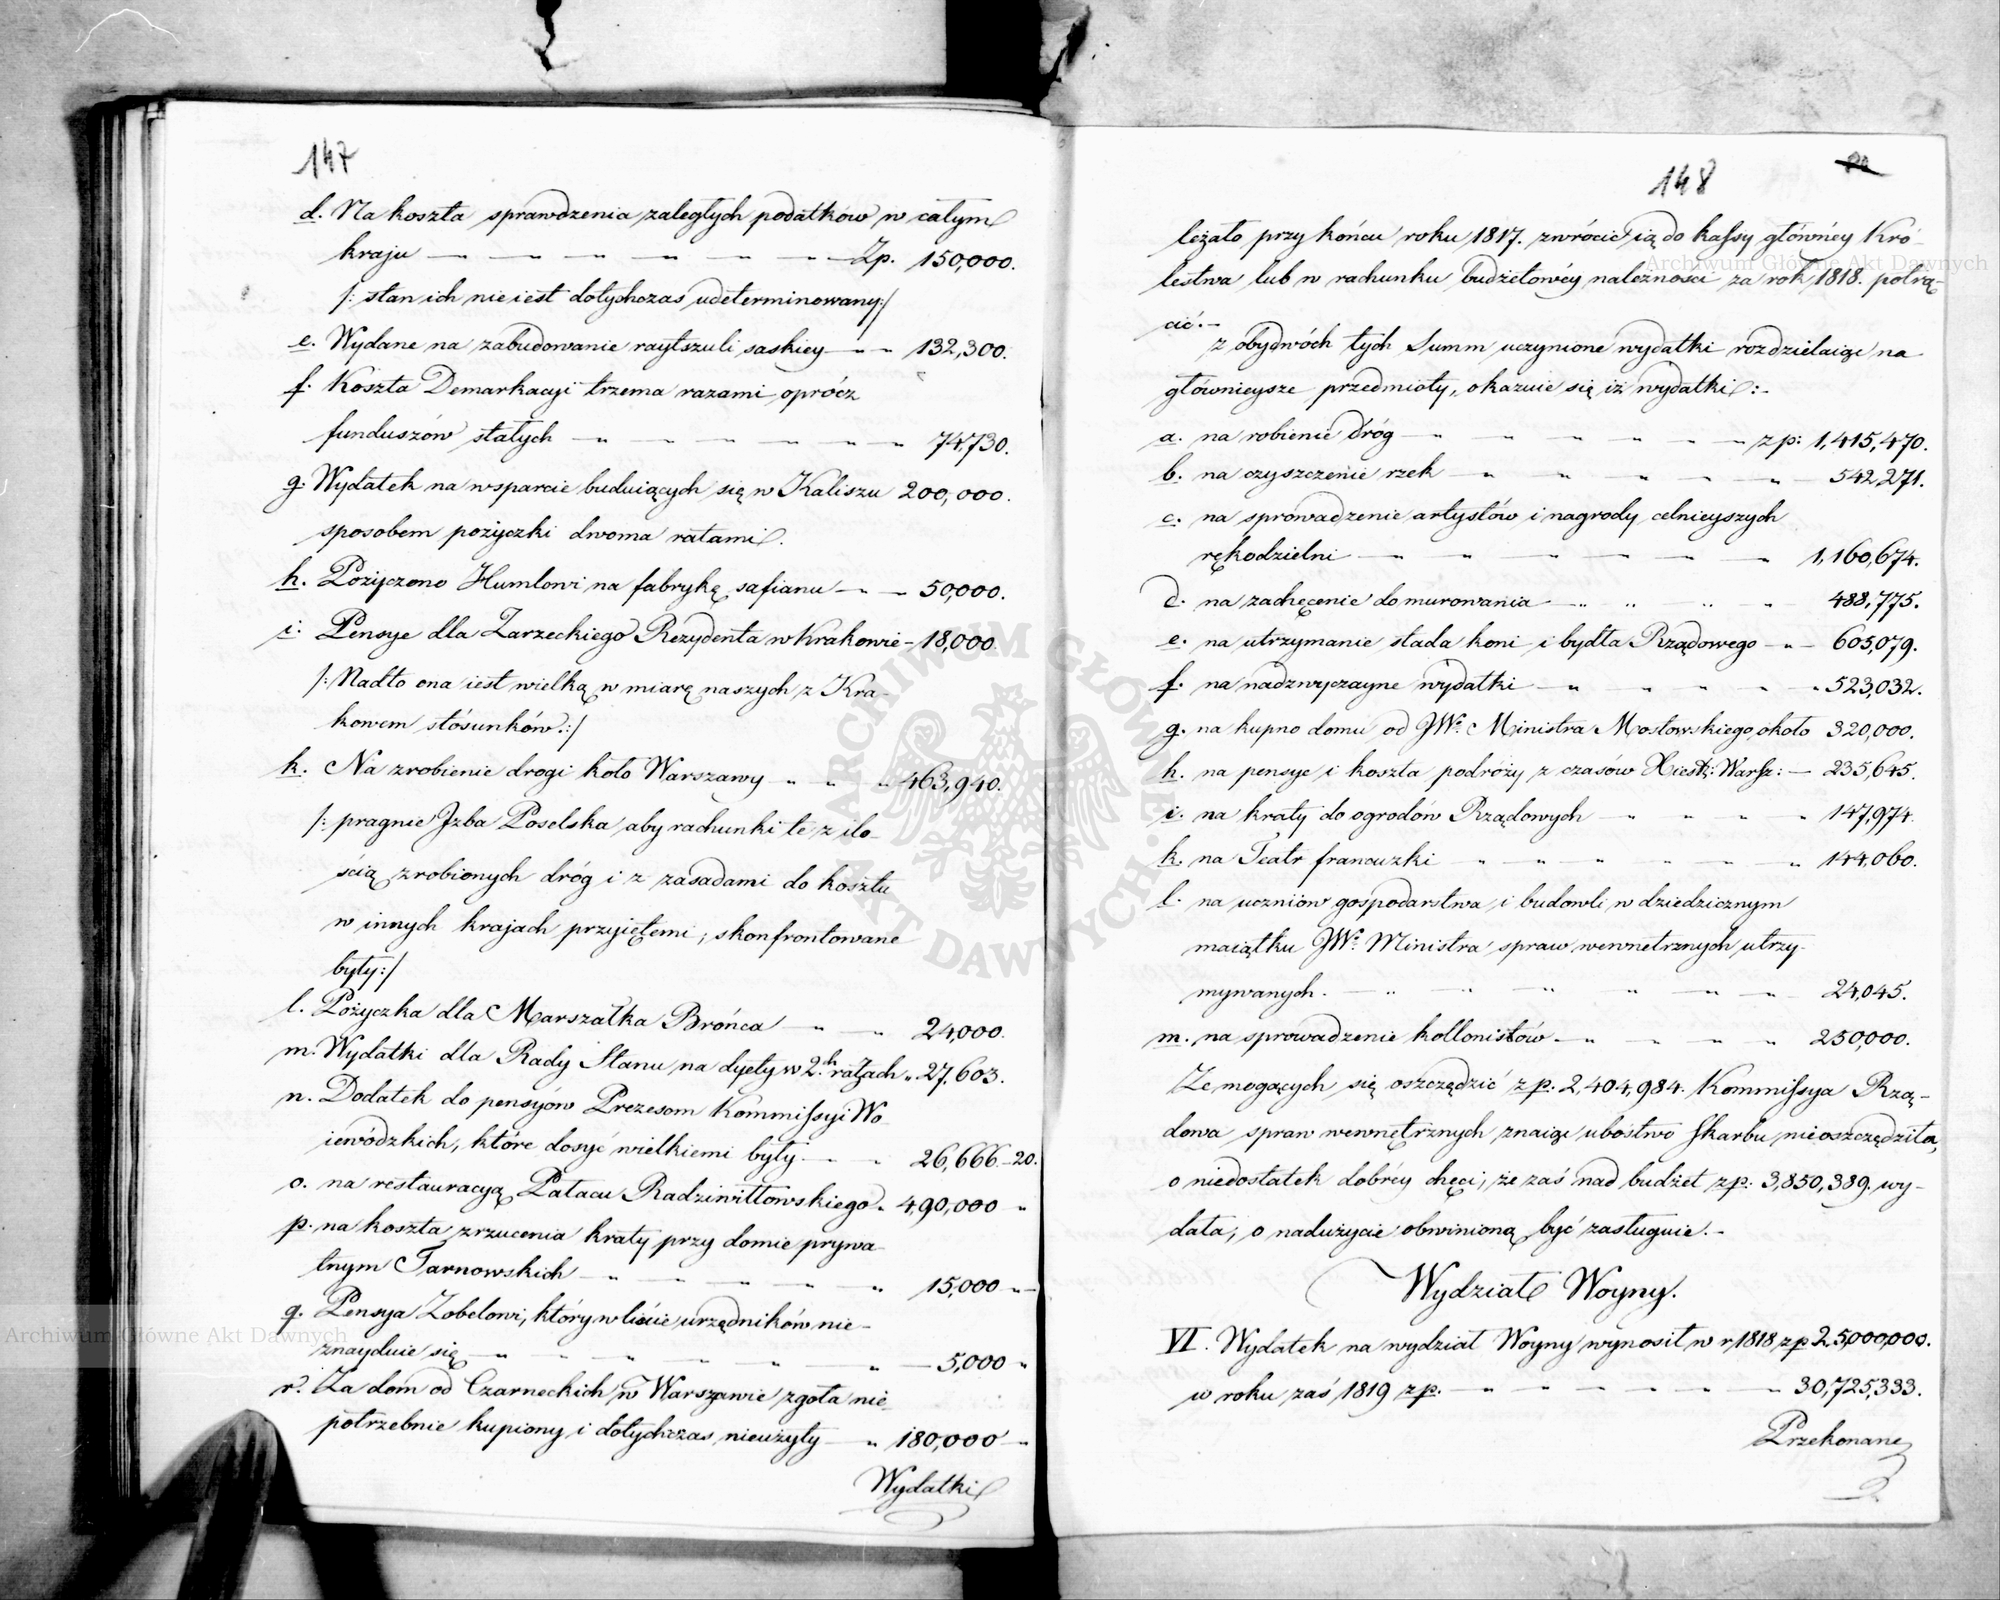 147
d. Na koszta sprawdzenia zaległych podatków w całym
kraju — " — " — " — Zp. 150,000.
/: stan ich nie iest dotychczas udeterminowany :/
e. Wydane na zabudowanie raytszuli saskiey — " — " 132,300.
f. Koszta Demarkacyi trzema razami oprócz
funduszów stałych — " — " — " — " 74,730.
g. Wydatek na wsparcie buduiących się w Kaliszu 200,000.
sposobem pożyczki dwoma ratami.
h. Pożyczono Humlowi na fabrykę safianu — " — 50,000.
i. Pensye dla Zarzeckiego Rezydenta w Krakowie — 18,000.
/: Nadto ona iest wielką w miarę naszych z Kra-
kowem stósunków :/
k. Na zrobienie drogi koło Warszawy " " " 463,940.
/: pragnie Izba Poselska aby rachunki te z ilo-
ścią zrobionych dróg i z zasadami do kosztu
w innych krajach przyiętemi, skonfrontowane
były :/
l. Pożyczka dla Marszałka Brońca — " — " 24,000.
m. Wydatki dla Rady Stanu na dyety w 2ch ratach " 27,603.
n. Dodatek do pensyów Prezesom Kommissyi Wo-
iewódzkich, które dosyć wielkiemi były — " 26,666—20.
o. na restauracyą Pałacu Radziwiłłowskiego " 490,000 "
p. na koszta zrzucenia kraty przy domie prywa-
tnym Tarnowskich — " — " — " 15,000 "—
q. Pensya Zobelowi, który w liście urzędników nie-
znayduie się — " — " — " — 5,000 "
r. Za dom od Czarneckich w Warszawie zgoła nie-
potrzebnie kupiony i dotychczas nieużyty — " 180,000 "
Wydatki
148
leżało przy końcu roku 1817. zwrócić ią do kassy głównéy Kró-
lestwa lub w rachunku budżetowéy należności za rok 1818. potrą-
cić.—
z obydwóch tych Summ uczynione wydatki rozdzielaiąc na
główneiysze przedmioty, okazuie się iż wydatki :—
a. na robienie dróg — " — " — " — zp: 1,415,470.
b. na czyszczenie rzek — " — " — " — 542,271.
c. na sprowadzenie artystów i nagrody celnieyszych
rękodzielni — " — " — " — " 1,160,674.
d. na zachęcenie do murowania — " " " " 488,775.
e. na utrzymanie stada koni i bydła Rządowego — " — 605,079.
f. na nadzwyczayne wydatki — " " " " " 523,032.
g. na kupno domu od JW. Ministra Mostowskiego około 320,000.
h. na pensye i koszta podróży z czasów Xięst: Warsz: — 235,645.
i. na kraty do ogrodów Rządowych — " " " " 147,974.
k. na Teatr francuzki — " — " — " — " 144,060.
l. na uczniów gospodarstwa i budowli w dziedzicznym
maiątku JW. Ministra spraw wewnetrznych utrzy-
mywanych. — " — " — " — " 24,045.
m. na sprowadzenie kollonistów — " " " " 250,000.
Ze mogących się oszczędzić zp: 2,404,984. Kommissya Rzą-
dowa spraw wewnętrznych znaiąc ubóstwo Skarbu, nieoszczędziła,
o niedostatek dobréy chęci, że zaś nad budżet zp: 3,850,389. wy-
dała, o nadużycie obwinioną być zasługuie.—
Wydział Woyny.
VI. Wydatek na wydział Woyny wynosił w r. 1818 zp 25,000,000.
w roku zaś 1819 zp. " — " — " — " 30,725,333.
Przekonane
Archiwum Główne Akt Dawnych
Archiwum Główne Akt Dawnych
ARCHIWUM GŁÓWNE AKT DAWNYCH